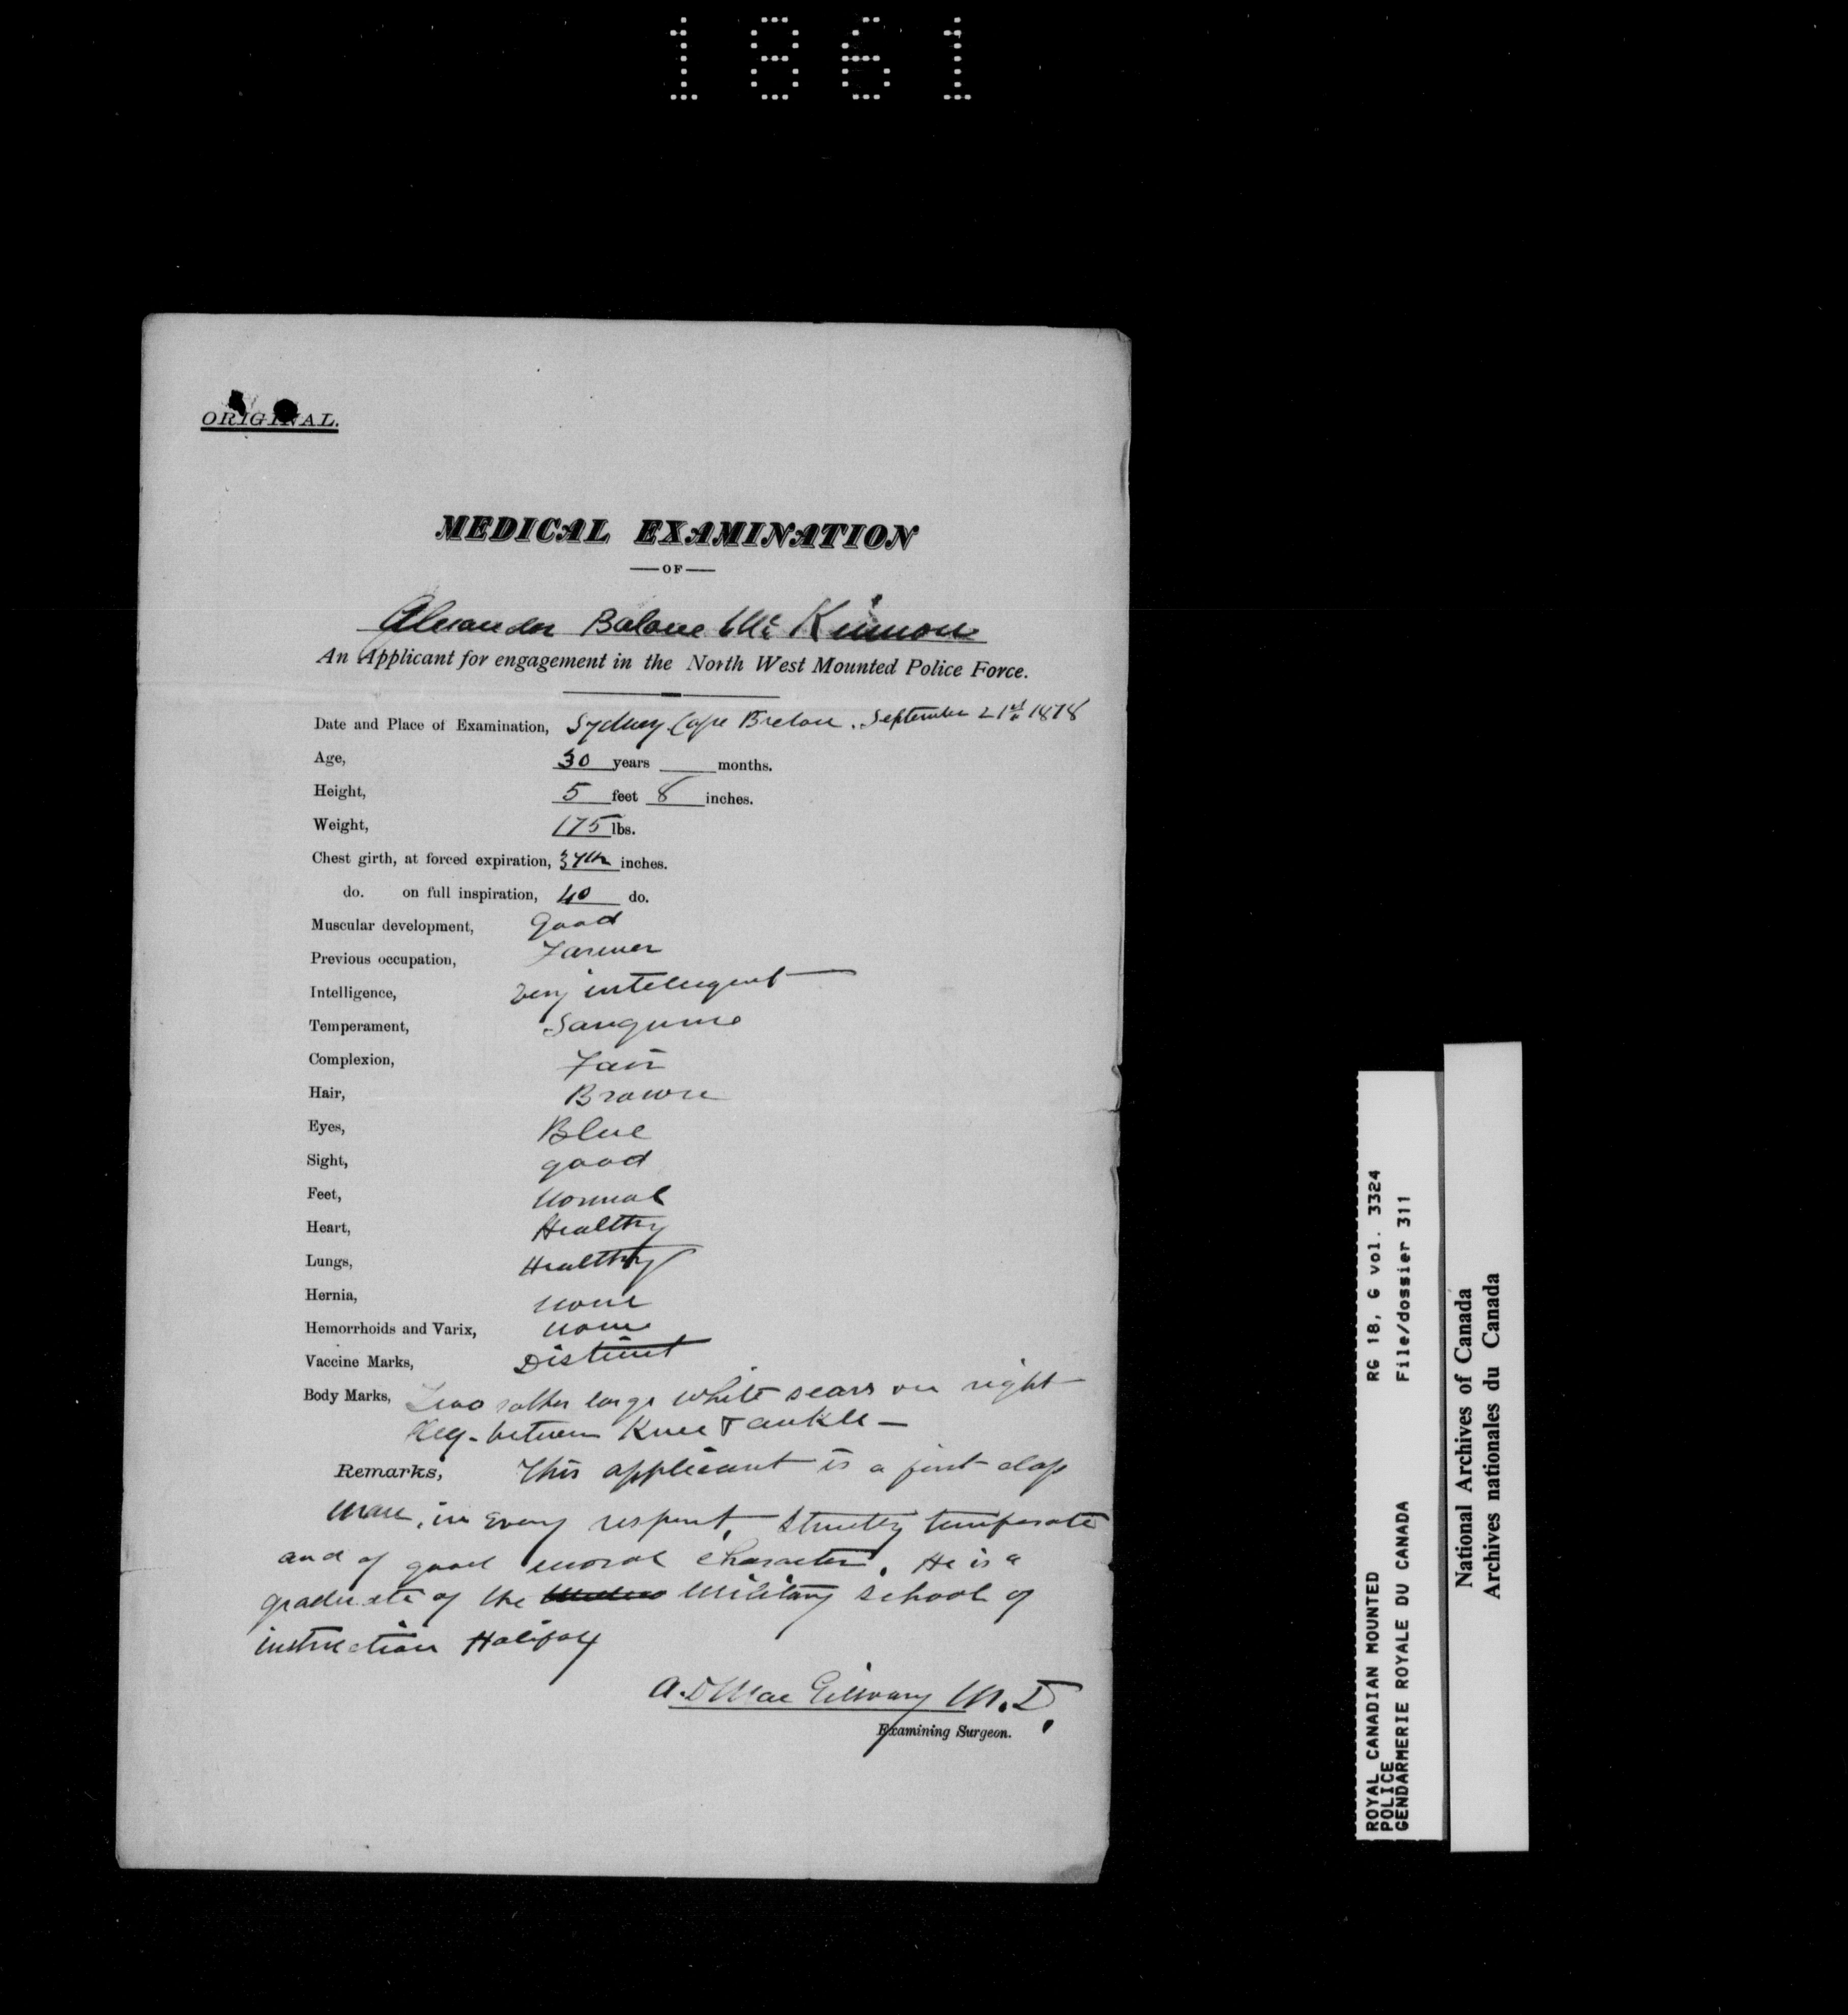 1861
ORIGINAL.
MEDICAL EXAMINATION
— OF —
Alexander McKinnon
An Applicant for engagement in the North West Mounted Police Force.
Date and Place of Examination, Sydney Cape Breton. September 21st 1878
Age, 30 years months.
Height, 5 feet 8 inches.
Weight, 175 lbs.
Chest girth, at forced expiration, inches.
do. on full inspiration, 40 do.
Muscular development, Good
Previous occupation, Farmer
Intelligence, Very intelligent
Temperament, Sanguine
Complexion, Fair
Hair, Brown
Eyes, Blue
Sight, good
Feet, Normal
Heart, Healthy
Lungs, Healthy
Hernia, None
Hemorrhoids and Varix, None
Vaccine Marks, Distinct
Body Marks, Two rather large white scars on right
Leg - between Knee & ankle -
Remarks, This applicant is a first class
man, in every respect, strictly temperate
and of good moral character. He is a
graduate of the Military school of
instruction Halifax
A. D Mac Gillvary M.D.
Examining Surgeon.
ROYAL CANADIAN MOUNTED RG 18, G vol. 3324
POLICE
GENDARMERIE ROYALE DU CANADA File/dossier 311
National Archives of Canada
Archives nationales du Canada